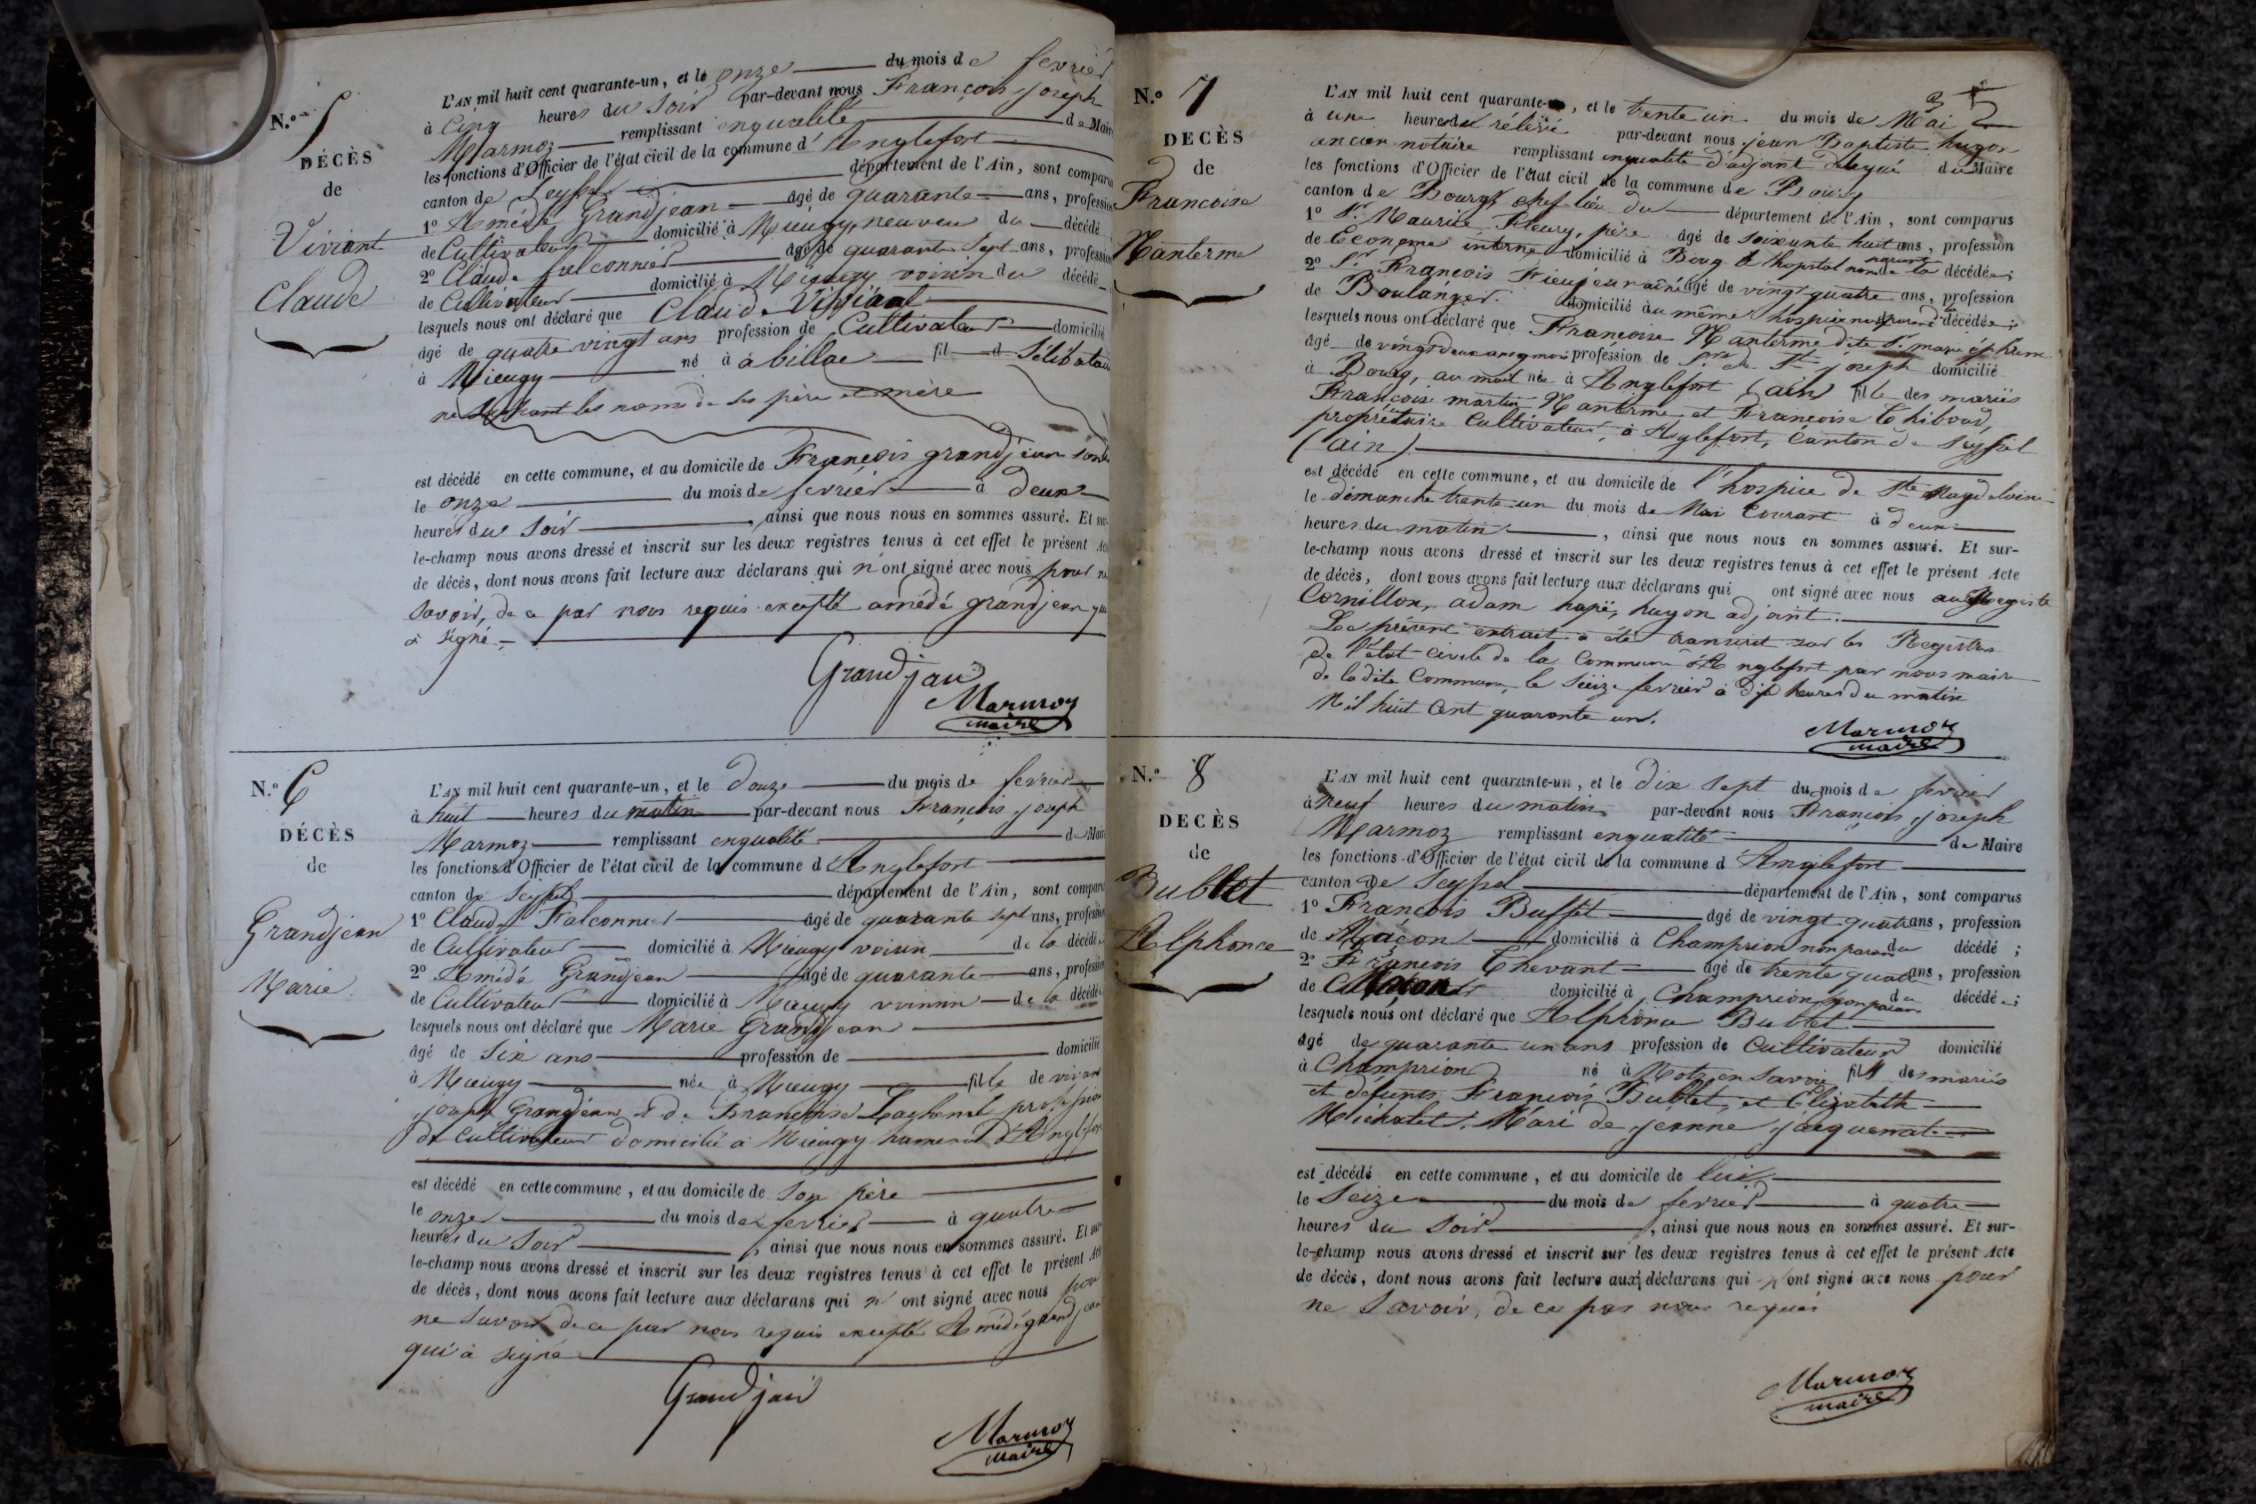 N.º 5
DÉCÈS
de
Viviant
Claude
L'AN mil huit cent quarante-un, et le onze du mois de fevrier
à Cinq heures du Soir par-devant nous François joseph
Marmoz remplissant enqualité de Maire
les fonctions d'Officier de l'état civil de la commune d'Anglefort
canton de Seyssel département de l'Ain, sont comparus
1º Amédé Grandjean âgé de quarante ans, profession
de Cultivateur domicilié à Mieugy, neuveu du décédé
2º Claude falconnier âgé de quarante Sept ans, profession
de Cultivateur domicilié à Mieugy voisin du décédé
lesquels nous ont déclaré que Claude Viviant
âgé de quatre vingt ans profession de Cultivateur domicilié
à Mieugy né à à billae fil d Sélibataire
ne Sachant les noms de Ses père et mère
est décédé en cette commune, et au domicile de François grandjean
le onze du mois de fevrier à deux
heures du Soir, ainsi que nous nous en sommes assuré. Et sur-
le-champ nous avons dressé et inscrit sur les deux registres tenus à cet effet le présent Acte
de décès, dont nous avons fait lecture aux déclarans qui n'ont signé avec nous pour ne
Savoir, de ce par nous requis excepté amédé grandjean qui
à signé
Grandjan
Marmoz
maire
N.º 6
DÉCÈS
de
Grandjean
Marie
L'AN mil huit cent quarante-un, et le douze du mois de fevrier
à huit heures du matin par-devant nous François joseph
Marmoz remplissant enqualité de Maire
les fonctions d'Officier de l'état civil de la commune d'Anglefort
canton de Seyssel département de l'Ain, sont comparus
1º Claude Falconnier âgé de quarante sept ans, profession
de Cultivateur domicilié à Mieugy voisin de la décédée
2º Amédé Grandjean âgé de quarante ans, profession
de Cultivateur domicilié à Mieugy voisin de la décédée
lesquels nous ont déclaré que Marie Grandjean
âgé de Six ans profession de domicilié
à Mieugy née à Mieugy fille de vivant
joseph Grandjean et de Françoise profession
de Cultivateur domicilié à Mieugy hameau d'Anglefort
est décédé en cette commune, et au domicile de Son père
le onze du mois de fevrier à quatre
heures du Soir, ainsi que nous nous en sommes assuré. Et sur-
le-champ nous avons dressé et inscrit sur les deux registres tenus à cet effet le présent Acte
de décès, dont nous avons fait lecture aux déclarans qui n'ont signé avec nous pour
ne Savoir de ce par nous requis excepté Amédé grandjean
qui à signé
Grandjan
Marmoz
maire
N.º 7
DECÈS
de
Francoise
Nanterme
L'AN mil huit cent quarante, et le trente un du mois de Mai
à une heure du rélevé par-devant nous jean Baptiste hugon
ancien notaire remplissant enqualité d'adjoint délégué du Maire
les fonctions d'Officier de l'état civil de la commune de Bourg
canton de Bourg chef lieu du département de l'Ain, sont comparus
1º Sr. Maurice Fleury, père âgé de soixante huit ans, profession
de Econome interne domicilié à Bourg à l'hopital de la décédée;
2º Sr. François âgé de vingt quatre ans, profession
de Boulanger. domicilié au même hospice non parent décédée;
lesquels nous ont déclaré que Françoise Nanterme dite Sr. marie
âgé de vingt deux ans profession de Sr. de St. joseph domicilié
à Bourg, au née à Anglefort (ain) fille des mariés
François martin Nanterme et Françoise Chiboud,
propriétaire Cultivateur, à Anglefort, Canton de Seyssel
(ain)
est décédé en cette commune, et au domicile de l'hospice de Ste Magdeleine
le démanche trente un du mois de Mai Courant à deux
heures du matin, ainsi que nous nous en sommes assuré. Et sur-
le-champ nous avons dressé et inscrit sur les deux registres tenus à cet effet le présent Acte
de décès, dont nous avons fait lecture aux déclarans qui ont signé avec nous au Registre
Cornillon, adam hugon adjoint.
Le présent extrait a été transcrit sur les Registres
de l'état Civile de la Commune d'Anglefort par nous maire
de la dite Commune, le Seize fevrier à dix heures du matin
Mil huit Cent quarante un.
Marmoz
maire
N.º 8
DECÈS
de
Bublet
Alphonce
L'AN mil huit cent quarante-un, et le dix Sept du mois de fevrier
à neuf heures du matin par-devant nous François joseph
Marmoz remplissant enqualité de Maire
les fonctions d'Officier de l'état civil de la commune d'Anglefort
canton de Seyssel département de l'Ain, sont comparus
1º François Buffet âgé de vingt quatre ans, profession
de Maçon domicilié à Champrion non parent du décédé;
2º François Chevant âgé de trente quatre ans, profession
de domicilié à Champrion, non parent du décédé;
lesquels nous ont déclaré que Alphonce Bublet
âgé de quarante un ans profession de Cultivateur domicilié
à Champrion né à Motz en Savoie fils des mariés
et défunts, François Bublet, et Elizabeth
Michalet. Mari de jeanne jacquemat
est décédé en cette commune, et au domicile de lui
le Seize du mois de fevrier à quatre
heures du Soir, ainsi que nous nous en sommes assuré. Et sur-
le-champ nous avons dressé et inscrit sur les deux registres tenus à cet effet le présent Acte
de décès, dont nous avons fait lecture aux déclarans qui n'ont signé avec nous pour
ne Savoir, de ce par nous requis
Marmoz
maire